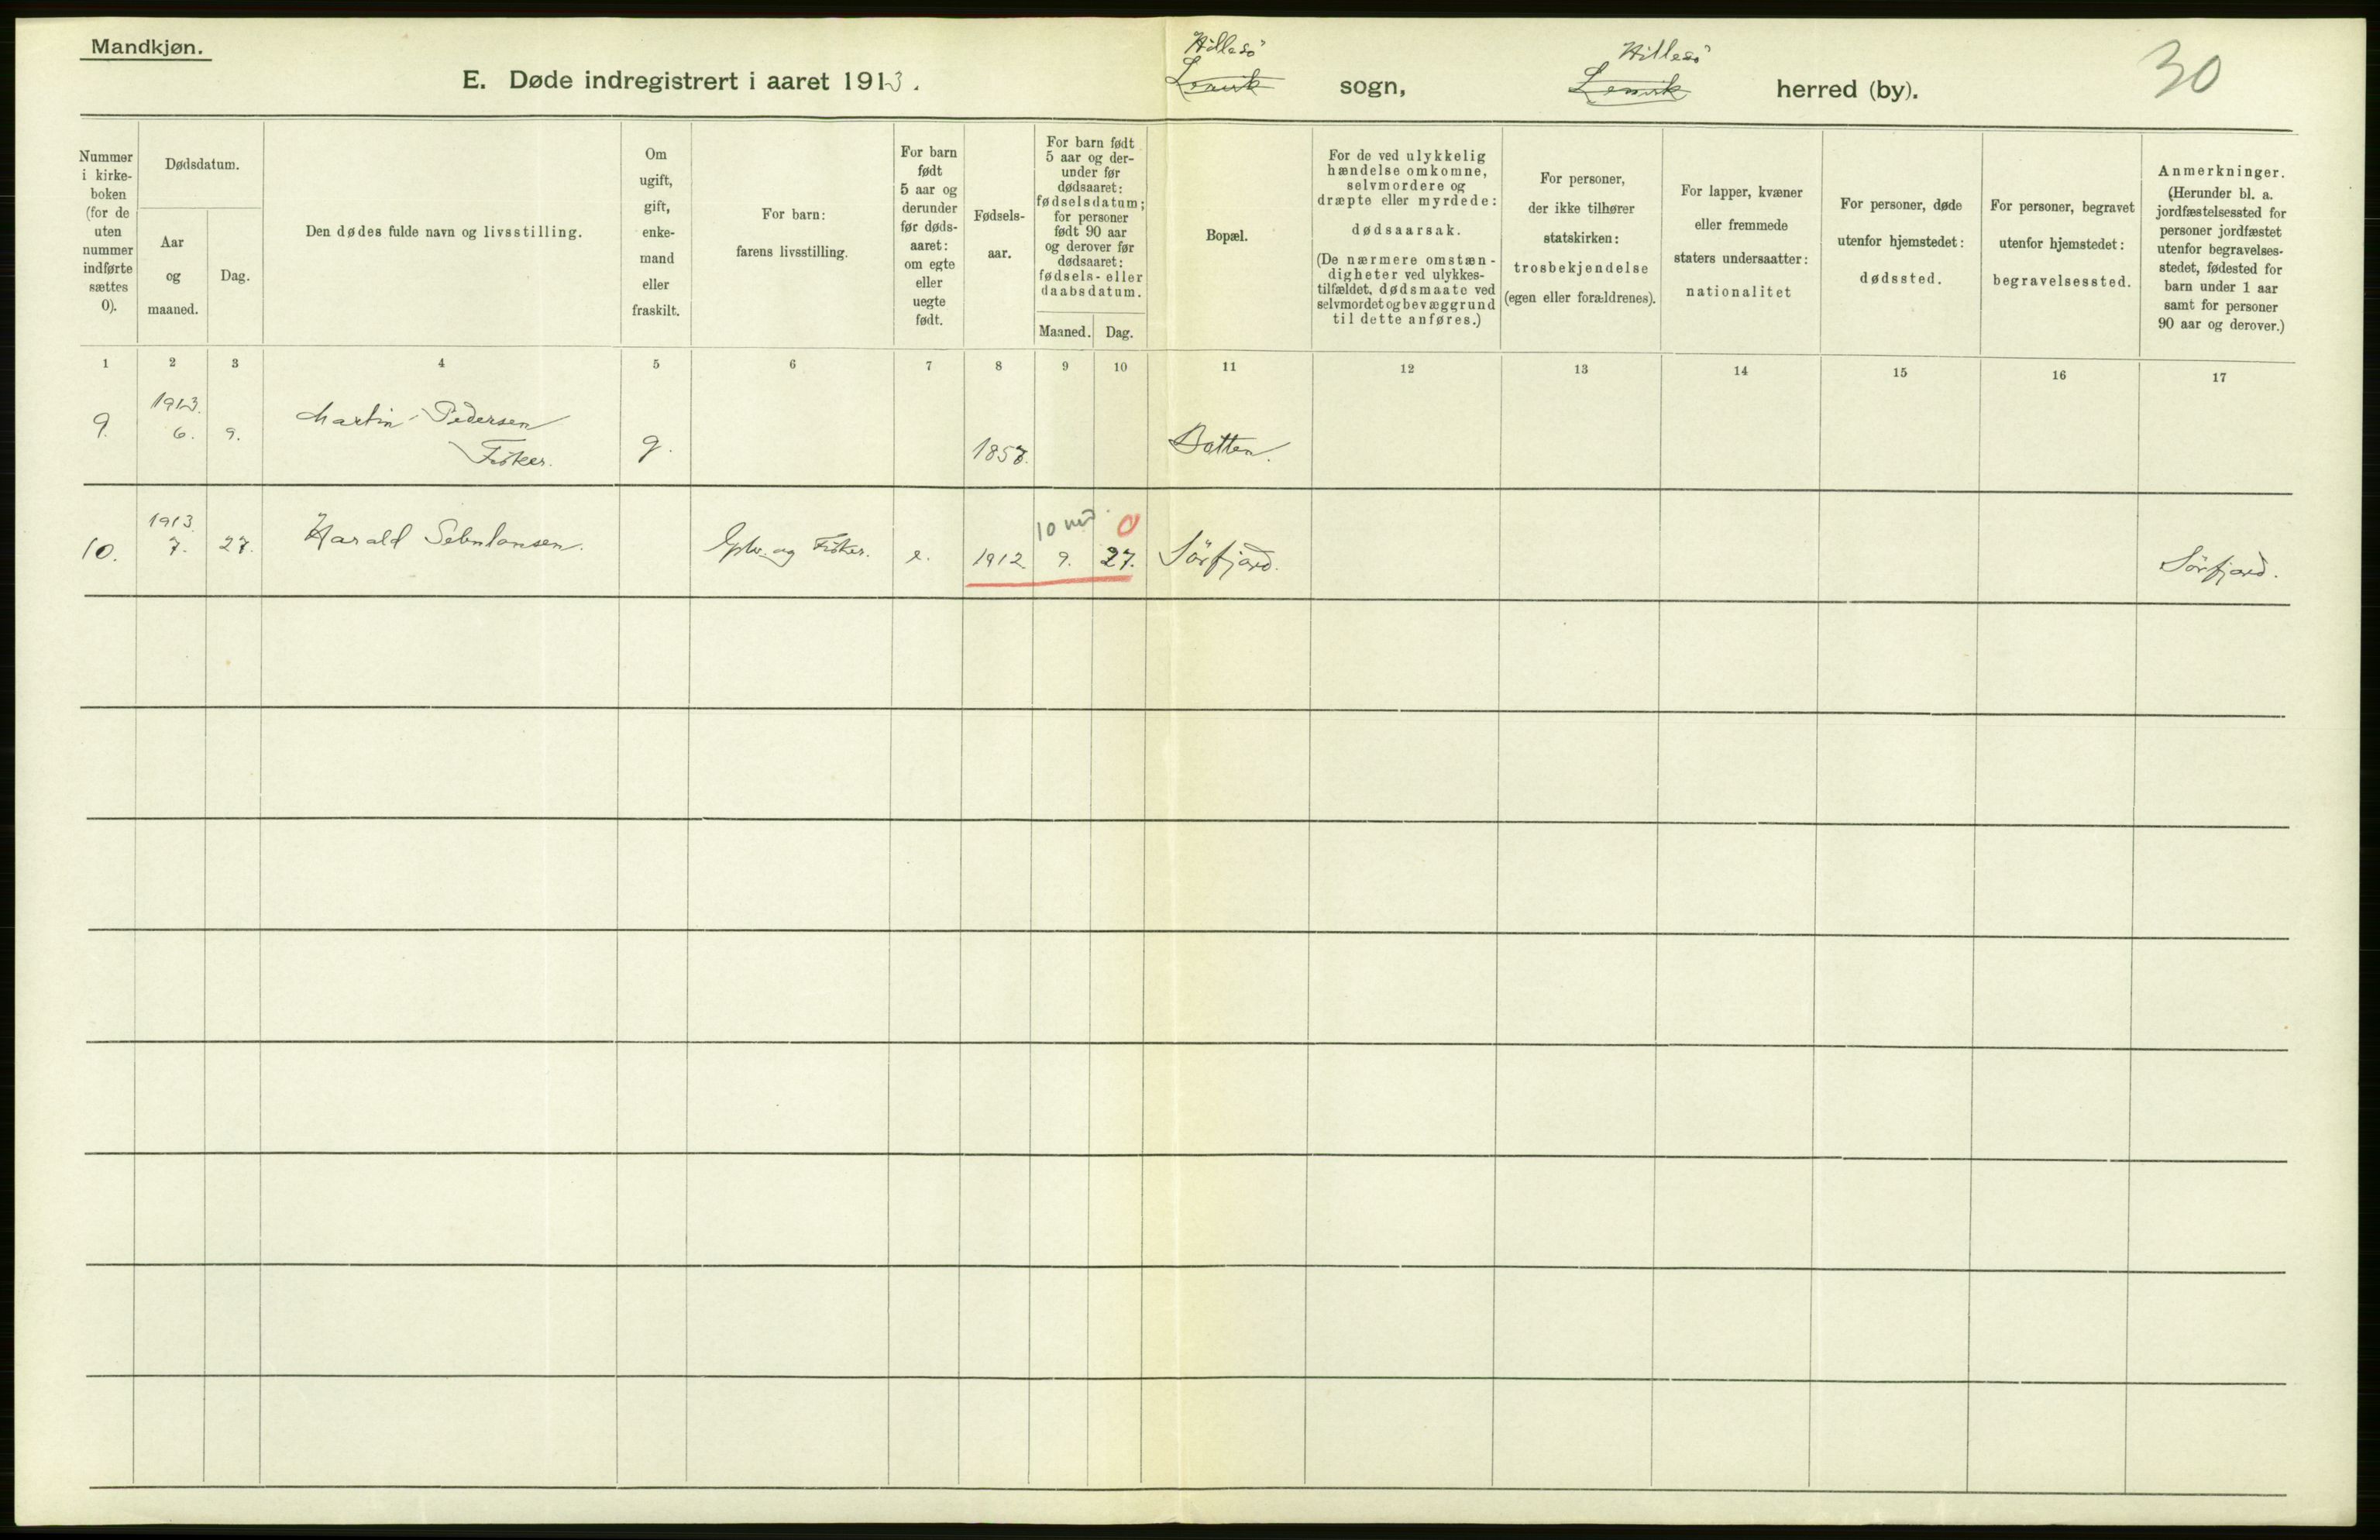 Mandkjøn.
E. Døde indregistrert i aaret 1913.
Hillesö
Lenvik sogn,
Hillesö
Lenvik herred (by).
30
Nummer
i kirke-
boken
(for de
uten
nummer
indførte
sættes
0).
Dødsdatum.
Aar
og
maaned.
Dag.
Den dødes fulde navn og livsstilling.
Om
ugift,
gift,
enke-
mand
eller
fraskilt.
For barn:
farens livsstilling.
For barn
født
5 aar og
derunder
før døds-
aaret:
om egte
eller
uegte
født.
Fødsels-
aar.
For barn født
5 aar og der-
under før
dødsaaret:
fødselsdatum;
for personer
født 90 aar
og derover før
dødsaaret:
fødsels- eller
daabsdatum.
Maaned.
Dag.
Bopæl.
For de ved ulykkelig
hændelse omkomne,
selvmordere og
dræpte eller myrdede:
dødsaarsak.
(De nærmere omstæn-
digheter ved ulykkes-
tilfældet, dødsmaate ved
selvmordet og bevæggrund
til dette anføres.)
For personer,
der ikke tilhører
statskirken:
trosbekjendelse
(egen eller forældrenes).
For lapper, kvæner
eller fremmede
staters undersaatter:
nationalitet
For personer, døde
utenfor hjemstedet:
dødssted.
For personer, begravet
utenfor hjemstedet:
begravelsessted.
Anmerkninger.
(Herunder bl. a.
jordfæstelsessted for
personer jordfæstet
utenfor begravelses-
stedet, fødested for
barn under 1 aar
samt for personer
90 aar og derover.)
1 2 3 4 5 6 7 8 9 10 11 12 13 14 15 16 17
1913.
9. 6. 9. Martin Pedersen
Fisker. g. 1857. Botten.
1913. 10 md. 0
10. 7. 27. Harald Gbr. og Fisker. e. 1912 9. 27. Sörfjord. Sörfjord.